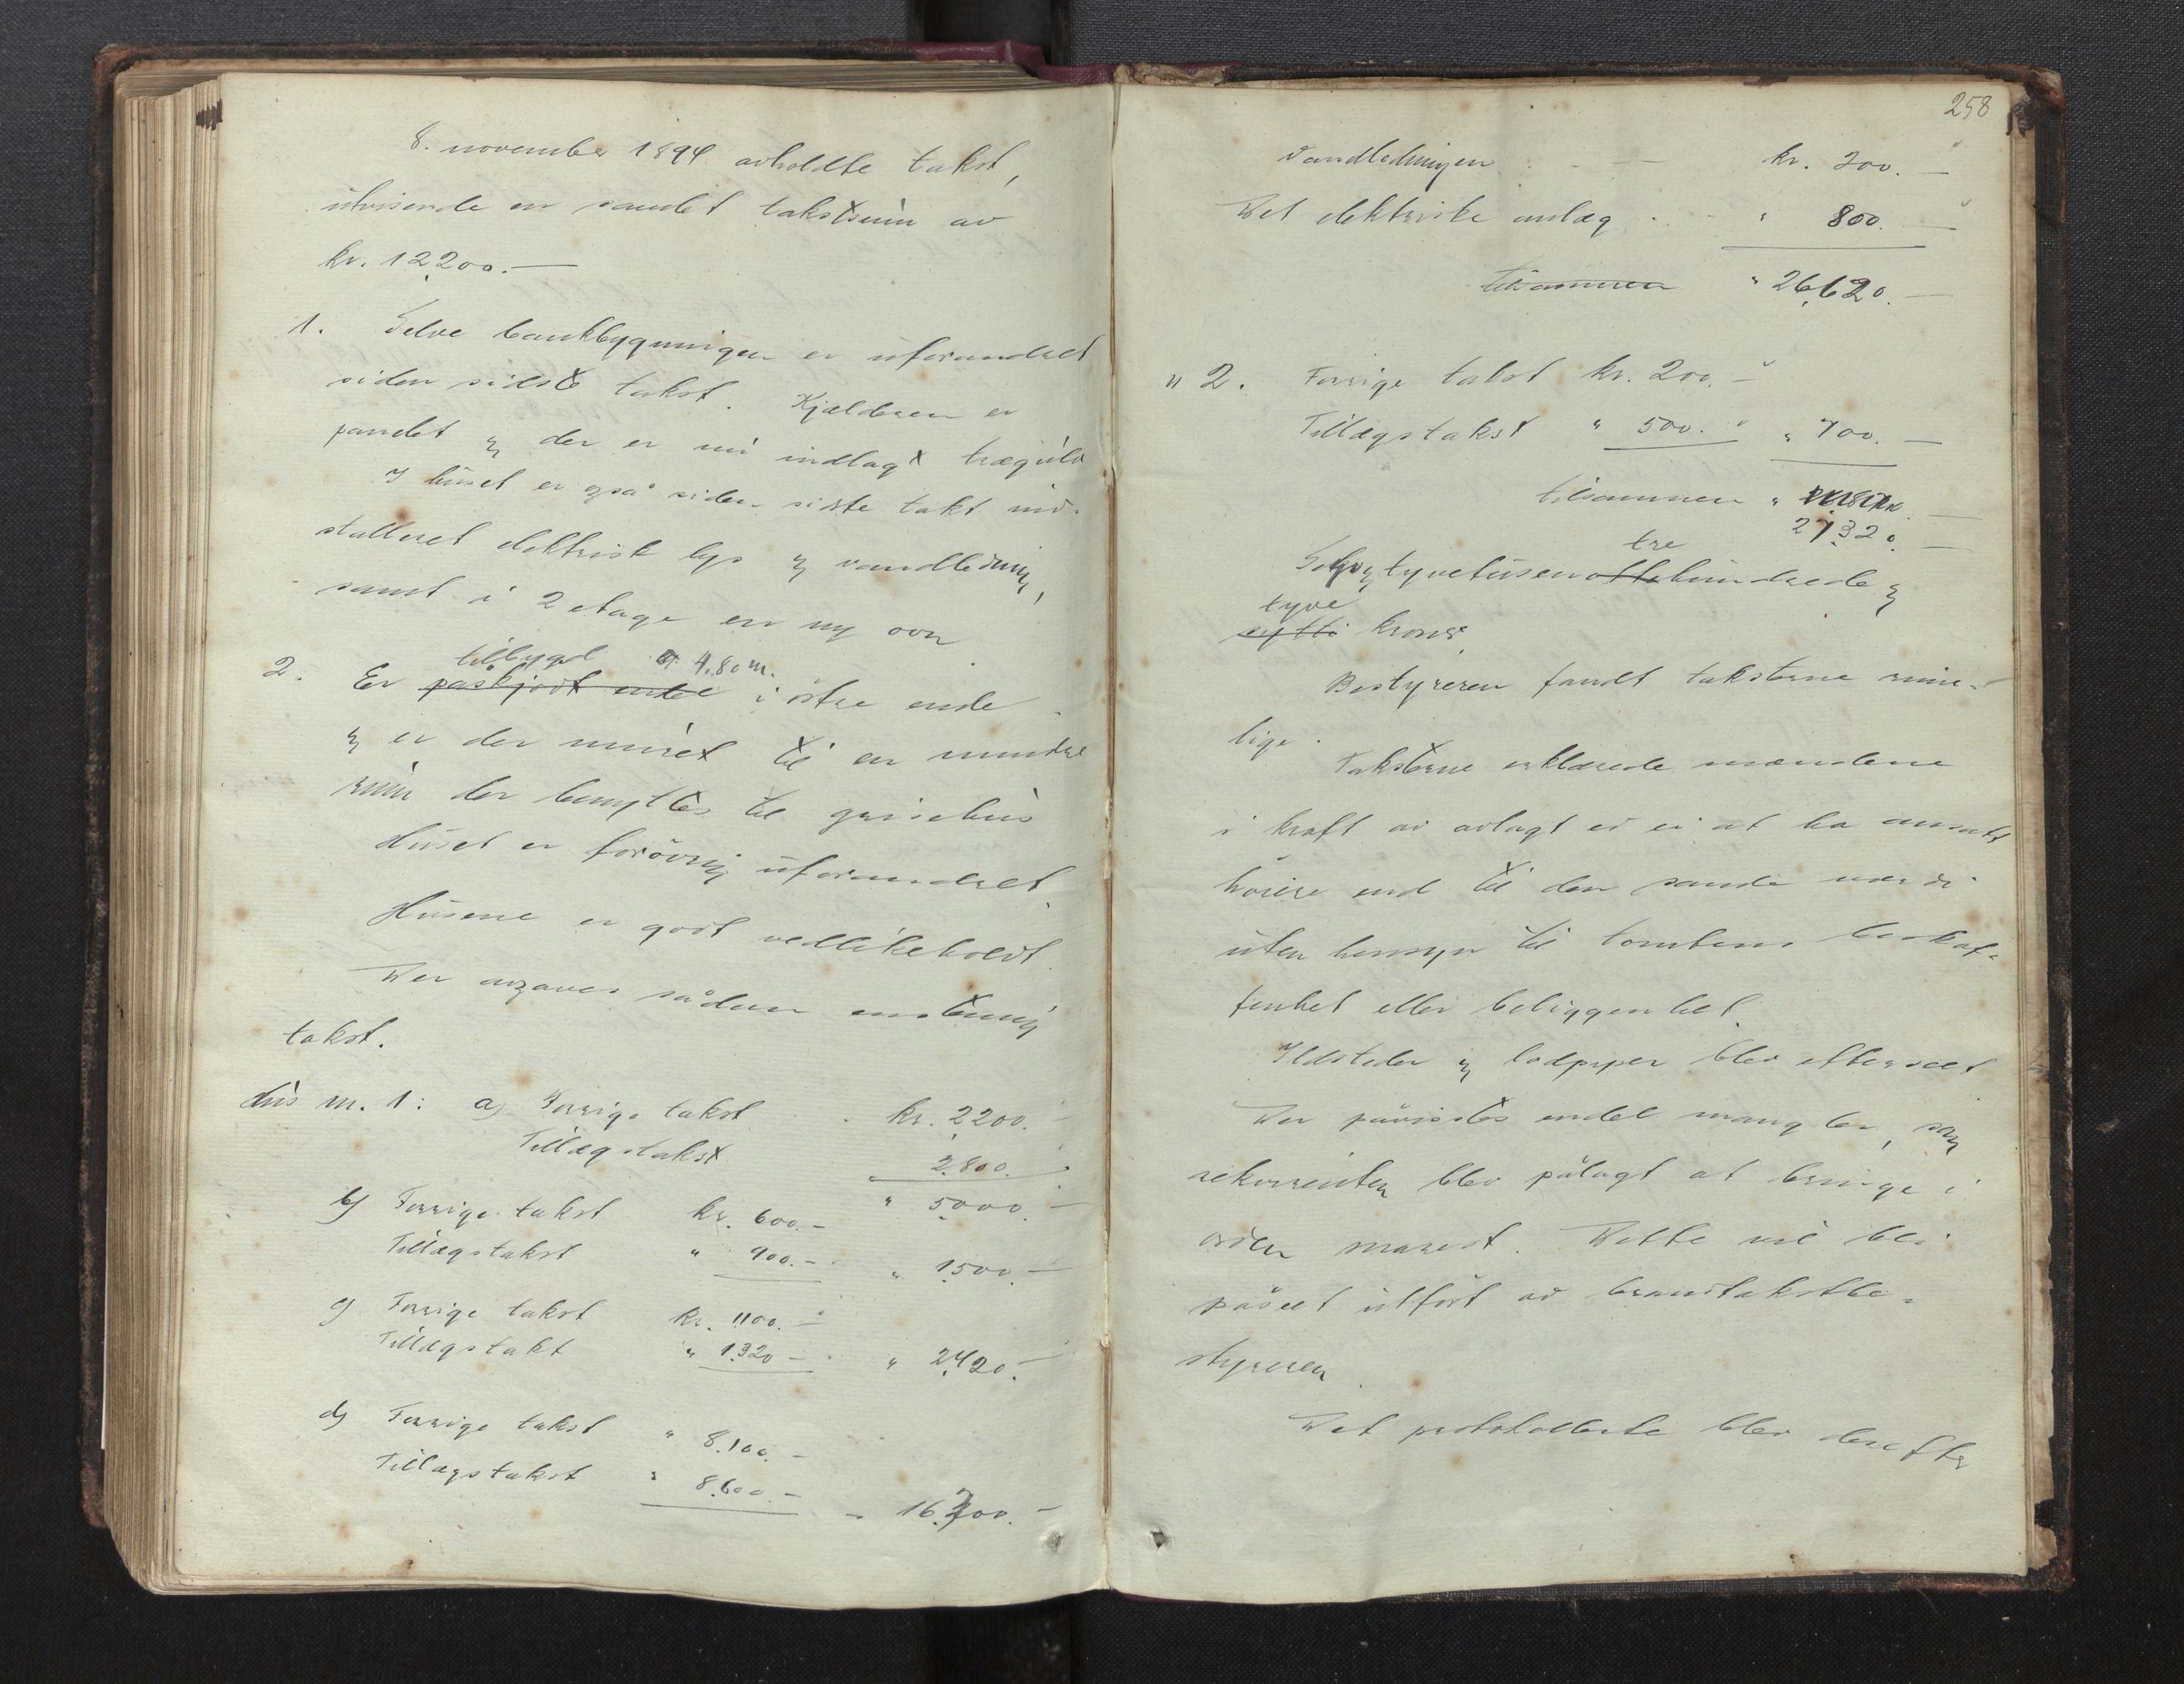 8. november 1894 avholdte takst,
utvisende en samlet takstsum av
kr. 12200.—
1. Selve bankbygningen er uforandret
siden sidste takst. Kjælderen er
panelet og der er nu indlagt trægulv
I huset er også siden siste takt ind-
stalleret elektrisk lys og vandledning,
samt i 2 etage en ny ovn.
tilbygd 4.80 m.
2. Er påskjødt i østre ende
og er der muret til en mindre
rum der benyttes til grisehus
Huset er forøvrig uforandret.
Husene er godt vedlikeholdt.
Der avgaves sådan enstemmig
takst.
Hus nr. 1: a) Forrige takst kr. 2200.—
Tillægstakst " 2.800.—
" 5000.—
b) Forrige takst kr. 600.—
Tillægstakst " 900.— " 1500.—
c) Forrige takst kr. 1100.—
Tillægstakt " 1.320— " 2420.—
d) Forrige takst " 8.100.—
Tillægstakst " 8.600.— " 16.700.—
258
Vandledningen — kr. 200.—
Det elektriske anlæg " 800.—
tilsammen " 26,620.—
" 2. Forrige takst kr. 200.—
Tillægstakst " 500. " 700.—
tilsammen "
27320.—
tre
Syv og tyvetusenottehundrede og
tyve
sytti kroner
Bestyreren fandt taksterne rime-
lige.
Taksterne erklærede mændene
i kraft av avlagt ed ei at ha ansatt
høiere end til den sande værdi
uten hensyn til tomtens beskaf-
fenhet eller beliggenhet.
Ildsteder og lodpiper blev efterseet
Der påvistes endel mangler, som
rekvirenten blev pålagt at bringe i
orden snarest. Dette vil bli
påseet utført av brandtakstbe-
styreren.
Det protokollerte blev derefter